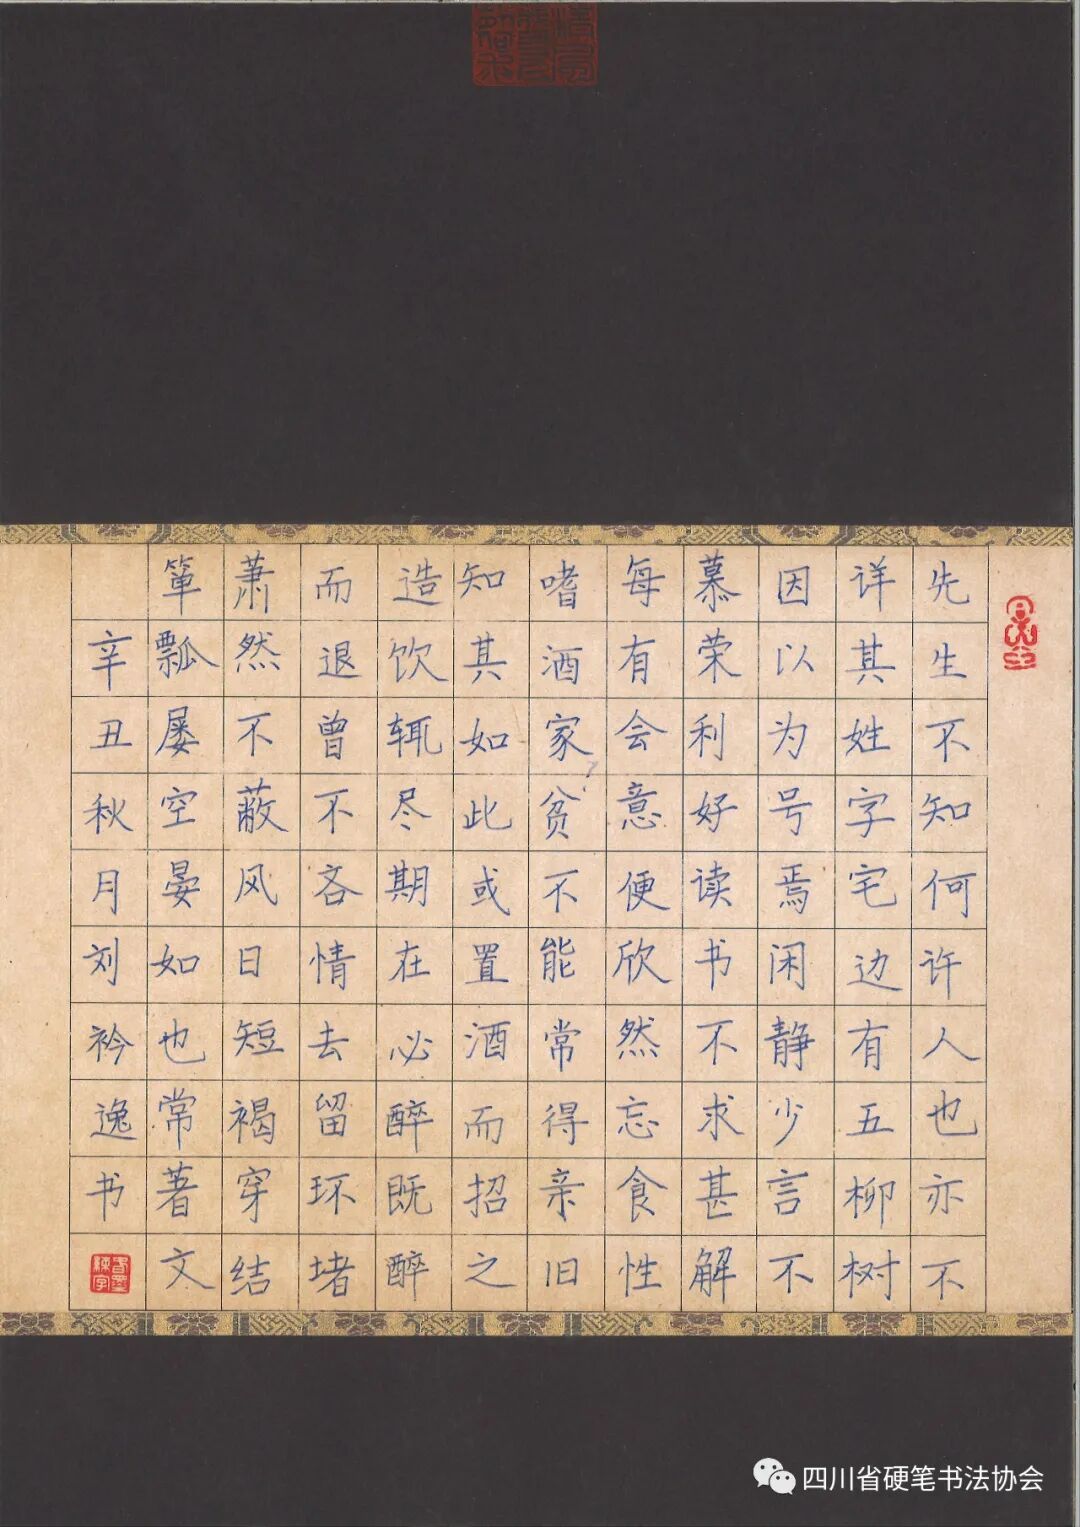 先生不知何许人也亦不
详其姓字宅边有五柳树
因以为号焉闲静少言不
慕荣利好读书不求甚解
每有会意便欣然忘食性
嗜酒家贫不能常得亲旧
知其如此或置酒而招之
造饮辄尽期在必醉既醉
而退曾不吝情去留环堵
萧然不蔽风日短褐穿结
箪瓢屡空晏如也常著文
辛丑秋月刘衿逸书
四川省硬笔书法协会